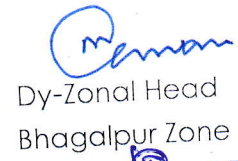 Dy-Zonal Head
Bhagalpur Zone